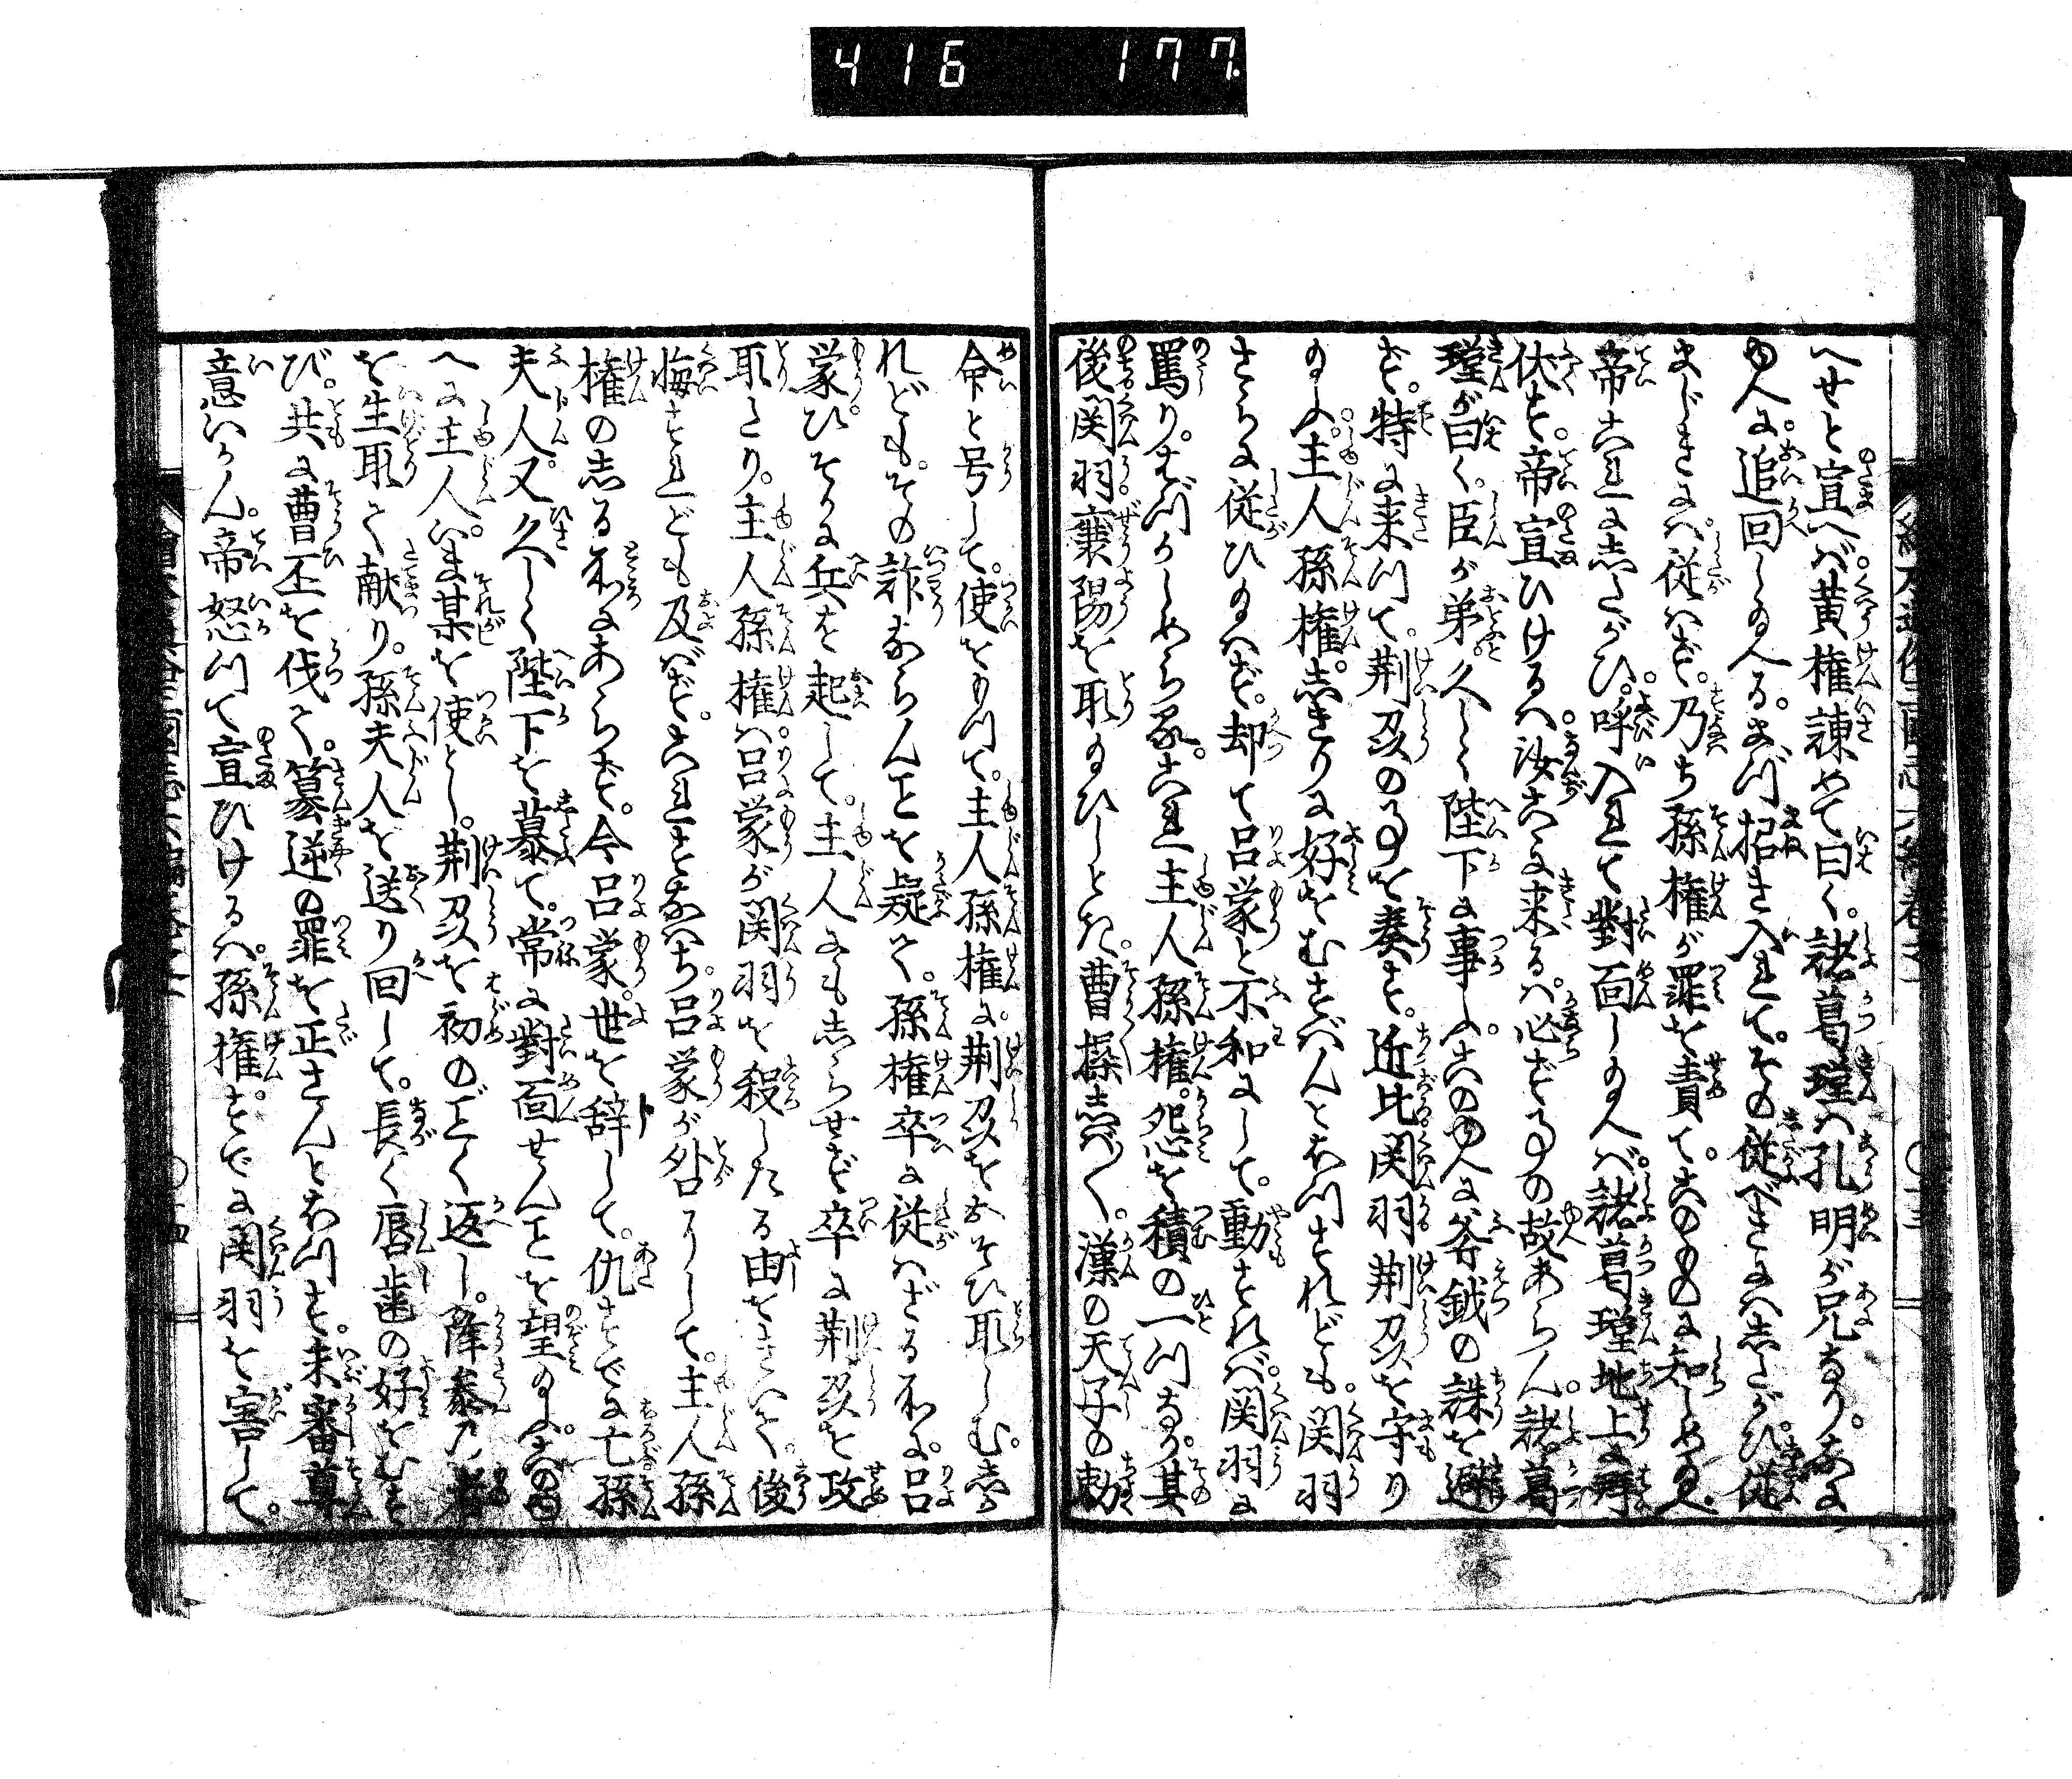 416 177
へせと宣へバ黄権諌めて曰く。諸葛瑾ハ孔明が兄なり。なに
ゆへに。追回し給へる。まづ招き入れて。その従べきにハしたがひ。従
まじきにハ。従ハず。乃ち孫権が罪を責て。このものに知しめ給へ。
帝これにしたがひ。呼入れて對面し給へバ。諸葛瑾地上に拜
伏す。帝宣ひけるハ。汝こゝに来るハ。必ずその故あらん。諸葛
瑾が曰く。臣が弟。久しく陛下に事ふ。このゆへに斧鉞の誅を避
ず。特に来つて。荊刕の事を奏す。近比関羽荊刕を守り
給ふ。主人孫権。しきりに好をむすバんとおつすれども。関羽
さらに従ひ給ハず。却て呂蒙と不和にして。動すれバ。関羽に
罵り。はづかしめらる。これ主人孫権。怨を積の一つなり。其
後関羽。襄陽を取給ひしとき。曹操しバ〳〵。漢の天子の勅
命と号して。使をもつて。主人孫権に。荊刕をおそひ取しむ。しか
れども。その詐ならんことを疑て。孫権卒に従ハざる所に。呂
蒙ひそかに兵を起して。主人にもしらせず卒に荊刕を攻
取たり。主人孫権ハ。呂蒙が関羽を殺したる由をきいて。後
悔すれども及バず。これすなハち。呂蒙が外にして。主人孫
権のしる所にあらず。今呂蒙。世を辞して。仇すでに亡。孫
夫人又。久しく陛下を慕て。常に對面せんことを望給ふ。このゆ
へに主人。いま某を使とし。荊刕を初のごとく返し。降参の者
を生取て献り。孫夫人を送り回して。長く唇歯の好をむす
び。共に曹丕を伐て。簒逆の罪を正さんとおつす。未審尊
意いかん。帝怒つて宣ひけるハ。孫権。すでに関羽を害して。